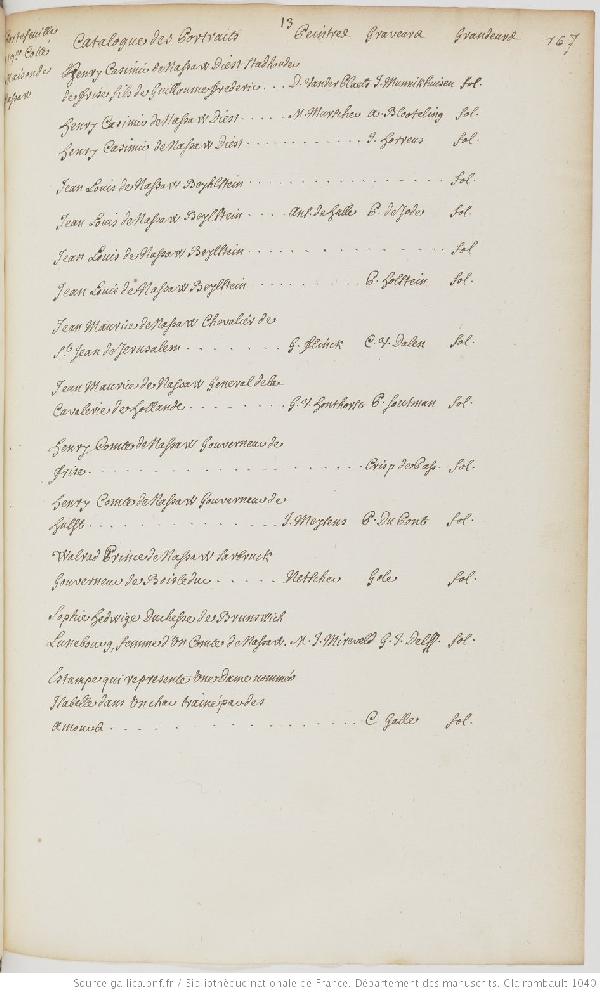 13
167
Catalogue des Portraits Peintres Graveurs Grandeurs
Maison de
Nassaw
Henry Casimir de Nassaw Diest Stadhouder
de frise fils de Guillaume frederic . . . D. Vander Plaets J. Munnikhuisen fol.
Henry Casimir de Nassaw Diest . . . . N. Mursche a. Bloteling fol.
Henry Casimir de Nassaw Diest . . . . . . . . . . . J. Horreus fol.
Jean Louis de Nassaw Beyhlstein . . . . . . . . . . . . . . . . . fol.
Jean Louis de Nassaw Beylstein . . . . Ant. de Salle P. de Jode fol.
Jean Louis de Nassaw Beylstein . . . . . . . . . . . . . . . . . fol
Jean Louis de Nassaw Beylstein . . . . . . . . . . . P. Holstein fol.
Jean Maurice de Nassaw Chevalier de
St. Jean de Jerusalem . . . . . . . . G. flinck C. V. Dalen fol.
Jean Maurice de Nassaw General de la
Cavalerie de hollande . . . . . . . . G. V. Honthorst P. Soutman fol.
Henry Comte de Nassaw Gouverneur de
frise . . . . . . . . . . . . . . . . . . . Crisp de Pass. fol.
Henry Comte de Nassaw Gouverneur de
hulst . . . . . . . . . . . . . J. Meytens P. Du Pont fol.
Walrad Prince de Nassaw Sarbruck
Gouverneur de Boisleduc . . . . . Netscher Gole fol.
Sophie Hedwige Duchesse de Brunswick
Lunebourg, femme d'Un Comte de Nassaw. M. J. Mirveld G. J. Delff. fol.
Estampe qui represente Une Dame nommée
Isabelle dans Un char trainé par des
Amours . . . . . . . . . . . . . . . . . . C. Galle fol.
Source gallica.bnf.fr / Bibliothèque nationale de France. Département des manuscrits. Clairambault 1040